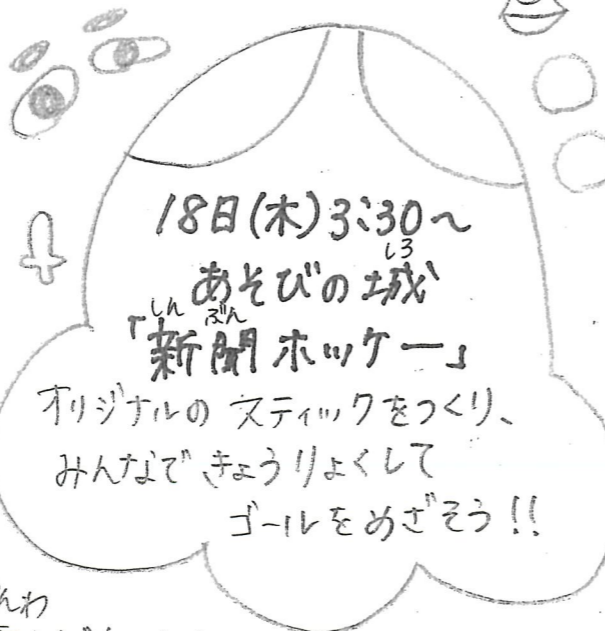 18日(木)3:30〜
あそびの城
しろ
「新聞ホッケー」
しん ぶん
オリジナルのスティックをつくり、
みんなできょうりょくして
ゴールをめざそう!!
んわ